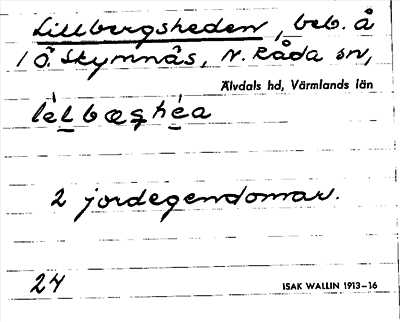 Lillbergsheden, beb. å
1 Ö. Skymnäs, N. Råda sn,
Älvdals hd, Värmlands län
2 jordegendomar.
24
ISAK WALLIN 1913–16